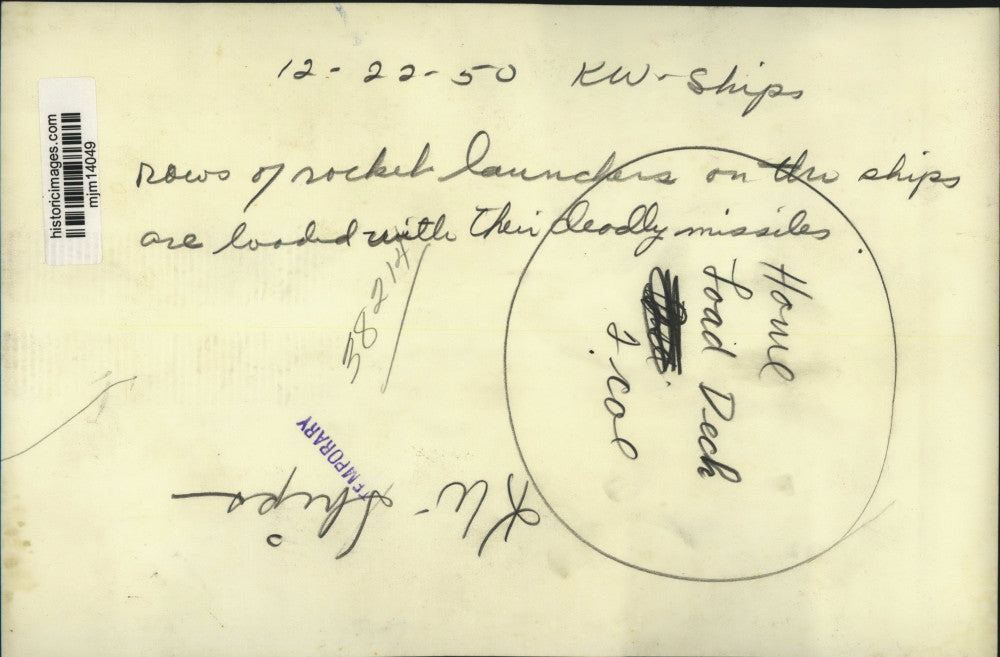 12-22-50 KW-Ships
rows of rocket launchers on the ships
are loaded with their deadly missiles.
historicimages.com
mjm14049
58214
Home
Load Deck
2 col
TEMPORARY
KW-Ships